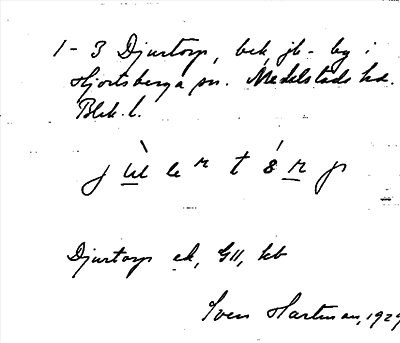 1-3 Djurtorp, bek. jb-by i
Hjortsberga sn. Medelstads hd.
Blek. l.
Djurtorp ek, GII, kb
Sven Hartman, 1929